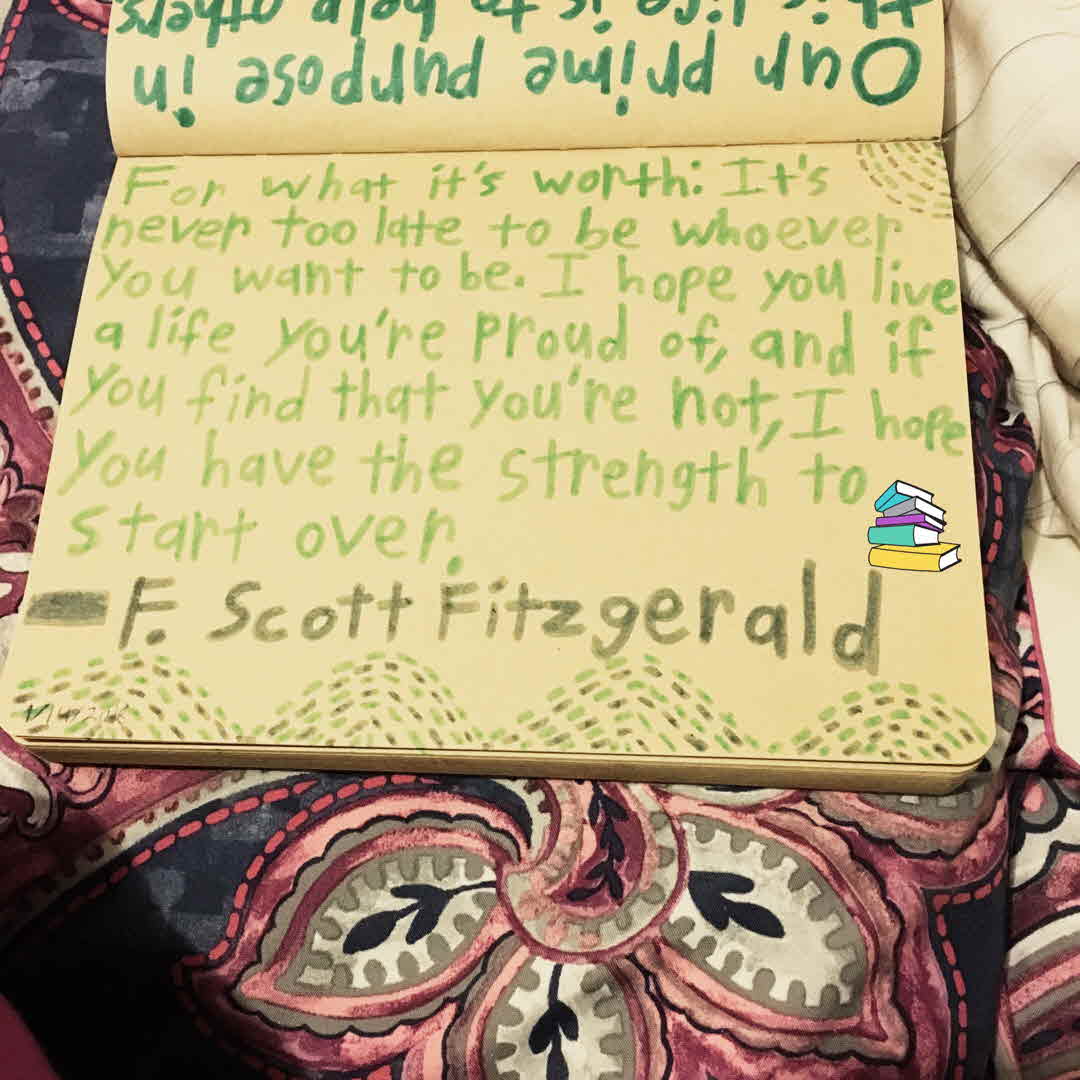 this life is to help others
Our prime purpose in
For what it's worth: It's
never too late to be whoever
you want to be. I hope you live
a life you're proud of, and if
you find that you're not, I hope
you have the strength to
start over.
— F. Scott Fitzgerald